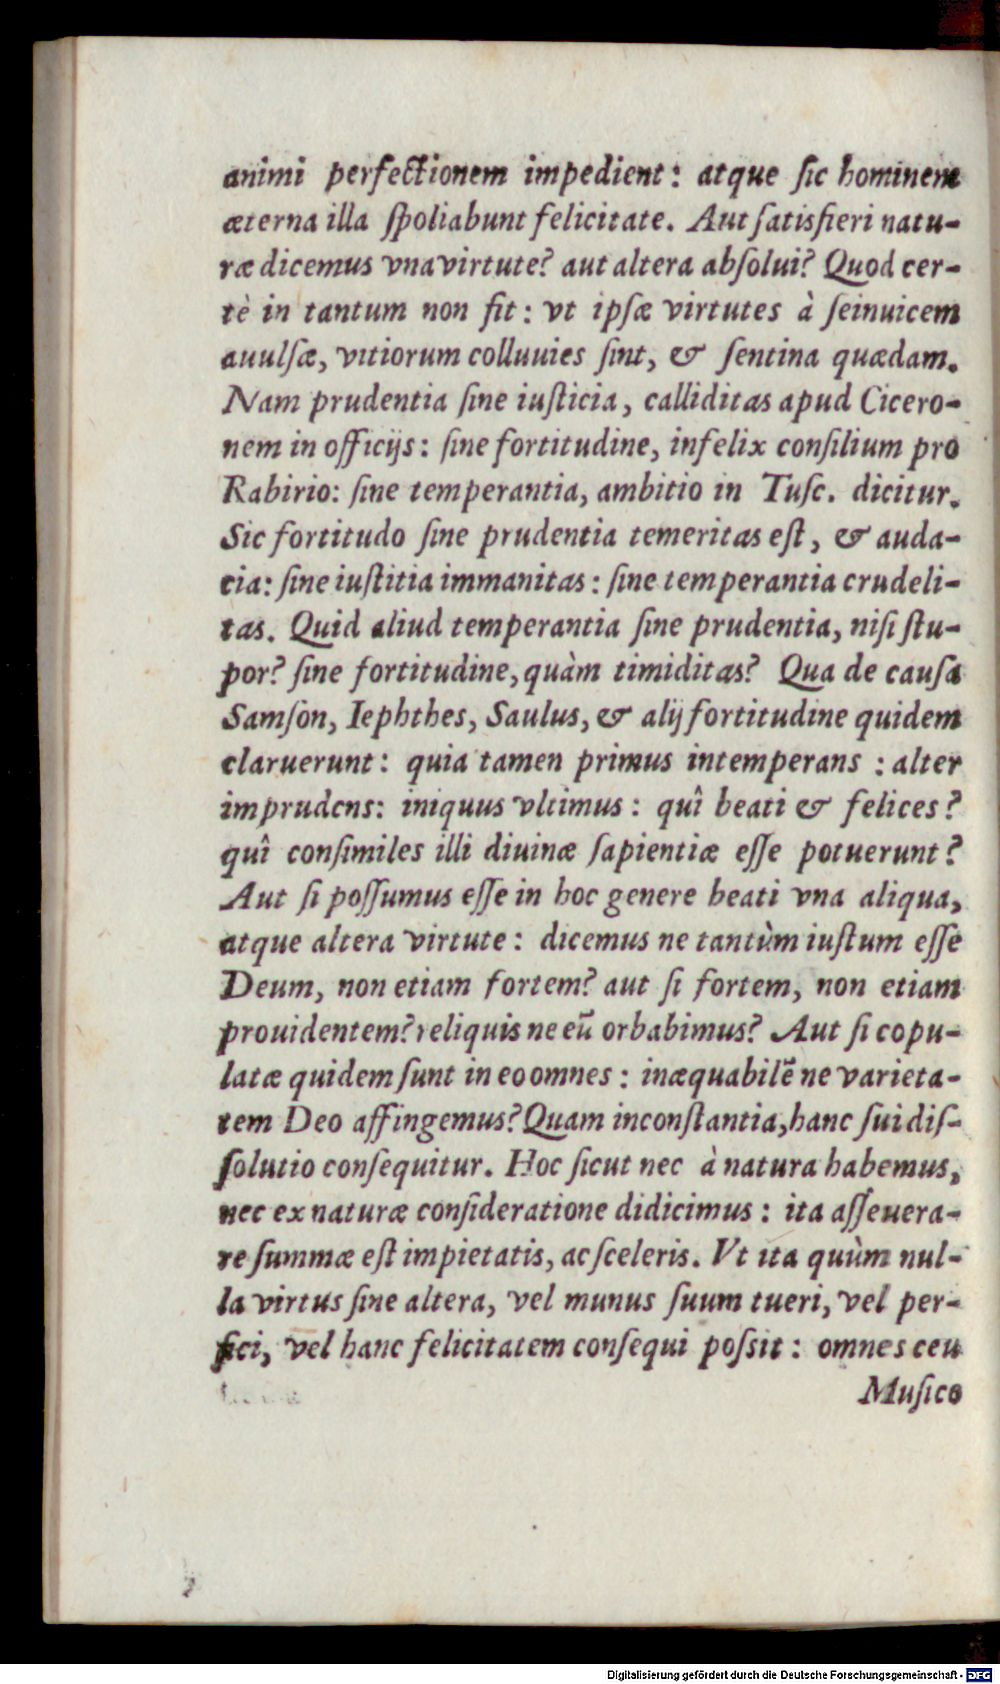 animi perfectionem impedient: atque ſic hominem
æterna illa ſpoliabunt felicitate. Aut ſatisfieri natu-
ræ dicemus vna virtute? aut altera abſolui? Quod cer-
tè in tantum non fit: vt ipſæ virtutes à ſeinuicem
auulſæ, vitiorum colluuies ſint, & ſentina quædam.
Nam prudentia ſine iuſticia, calliditas apud Cicero-
nem in officijs: ſine fortitudine, infelix conſilium pro
Rabirio: ſine temperantia, ambitio in Tuſc. dicitur.
Sic fortitudo ſine prudentia temeritas eſt, & auda-
cia: ſine iuſtitia immanitas: ſine temperantia crudeli-
tas. Quid aliud temperantia ſine prudentia, niſi ſtu-
por? ſine fortitudine, quàm timiditas? Qua de cauſa
Samſon, Iephthes, Saulus, & alij fortitudine quidem
claruerunt: quia tamen primus intemperans : alter
imprudens: iniquus vltimus: quî beati & felices?
quî conſimiles illi diuinæ ſapientiæ eſſe potuerunt?
Aut ſi poſſumus eſſe in hoc genere beati vna aliqua,
atque altera virtute: dicemus ne tantùm iuſtum eſſe
Deum, non etiam fortem? aut ſi fortem, non etiam
prouidentem? reliquis ne eū orbabimus? Aut ſi copu-
latæ quidem ſunt in eo omnes: inæquabilē ne varieta-
tem Deo affingemus? Quam inconſtantia, hanc ſui diſ-
ſolutio conſequitur. Hoc ſicut nec à natura habemus,
nec ex naturæ conſideratione didicimus: ita aſſeuera-
re ſummæ eſt impietatis, ac ſceleris. Vt ita quùm nul-
la virtus ſine altera, vel munus ſuum tueri, vel per-
fici, vel hanc felicitatem conſequi poſsit: omnes ceu
Muſico
Digitalisierung gefördert durch die Deutsche Forschungsgemeinschaft - DFG